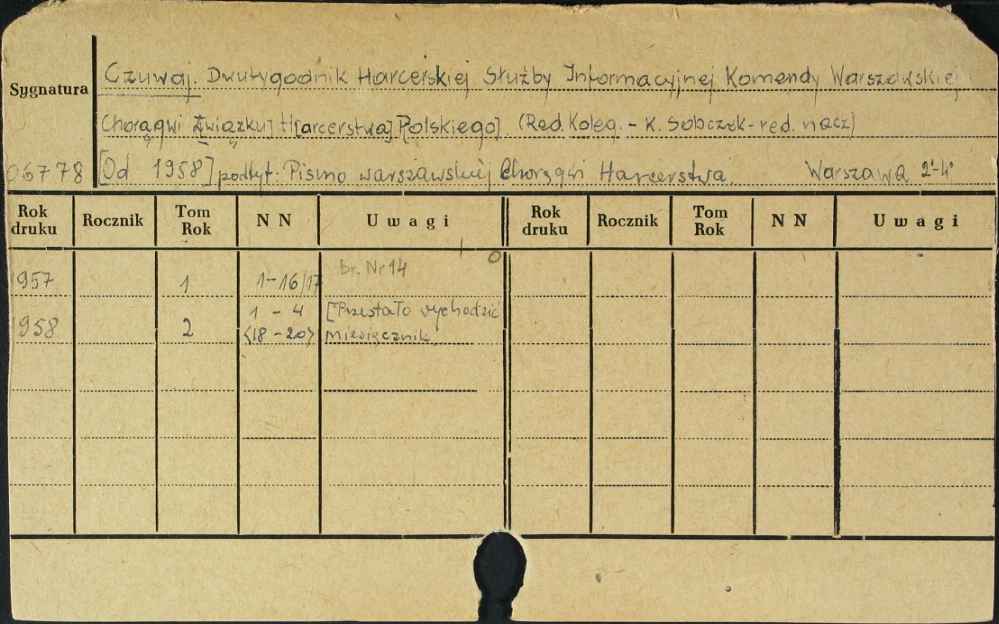 Czuwaj. Dwutygodnik Harcerskiej Służby Informacyjnej Komendy Warszawskiej
Sygnatura
Chorągwi Związku] H[arcerstwa] Polskiego] (Red. Koleg. - K. Sobczak - red. nacz)
06778 [Od 1958] podtyt: Pismo warszawskiej Chorągwi Harcerstwa. Warszawa 2°-4°
Rok druku Rocznik Tom Rok N N Uwagi Rok druku Rocznik Tom Rok N N Uwagi
1957 1 1-16/17 br. Nr 14
1958 2 1 - 4 [Przestało wychodzić
<18 - 20> miesięcznik